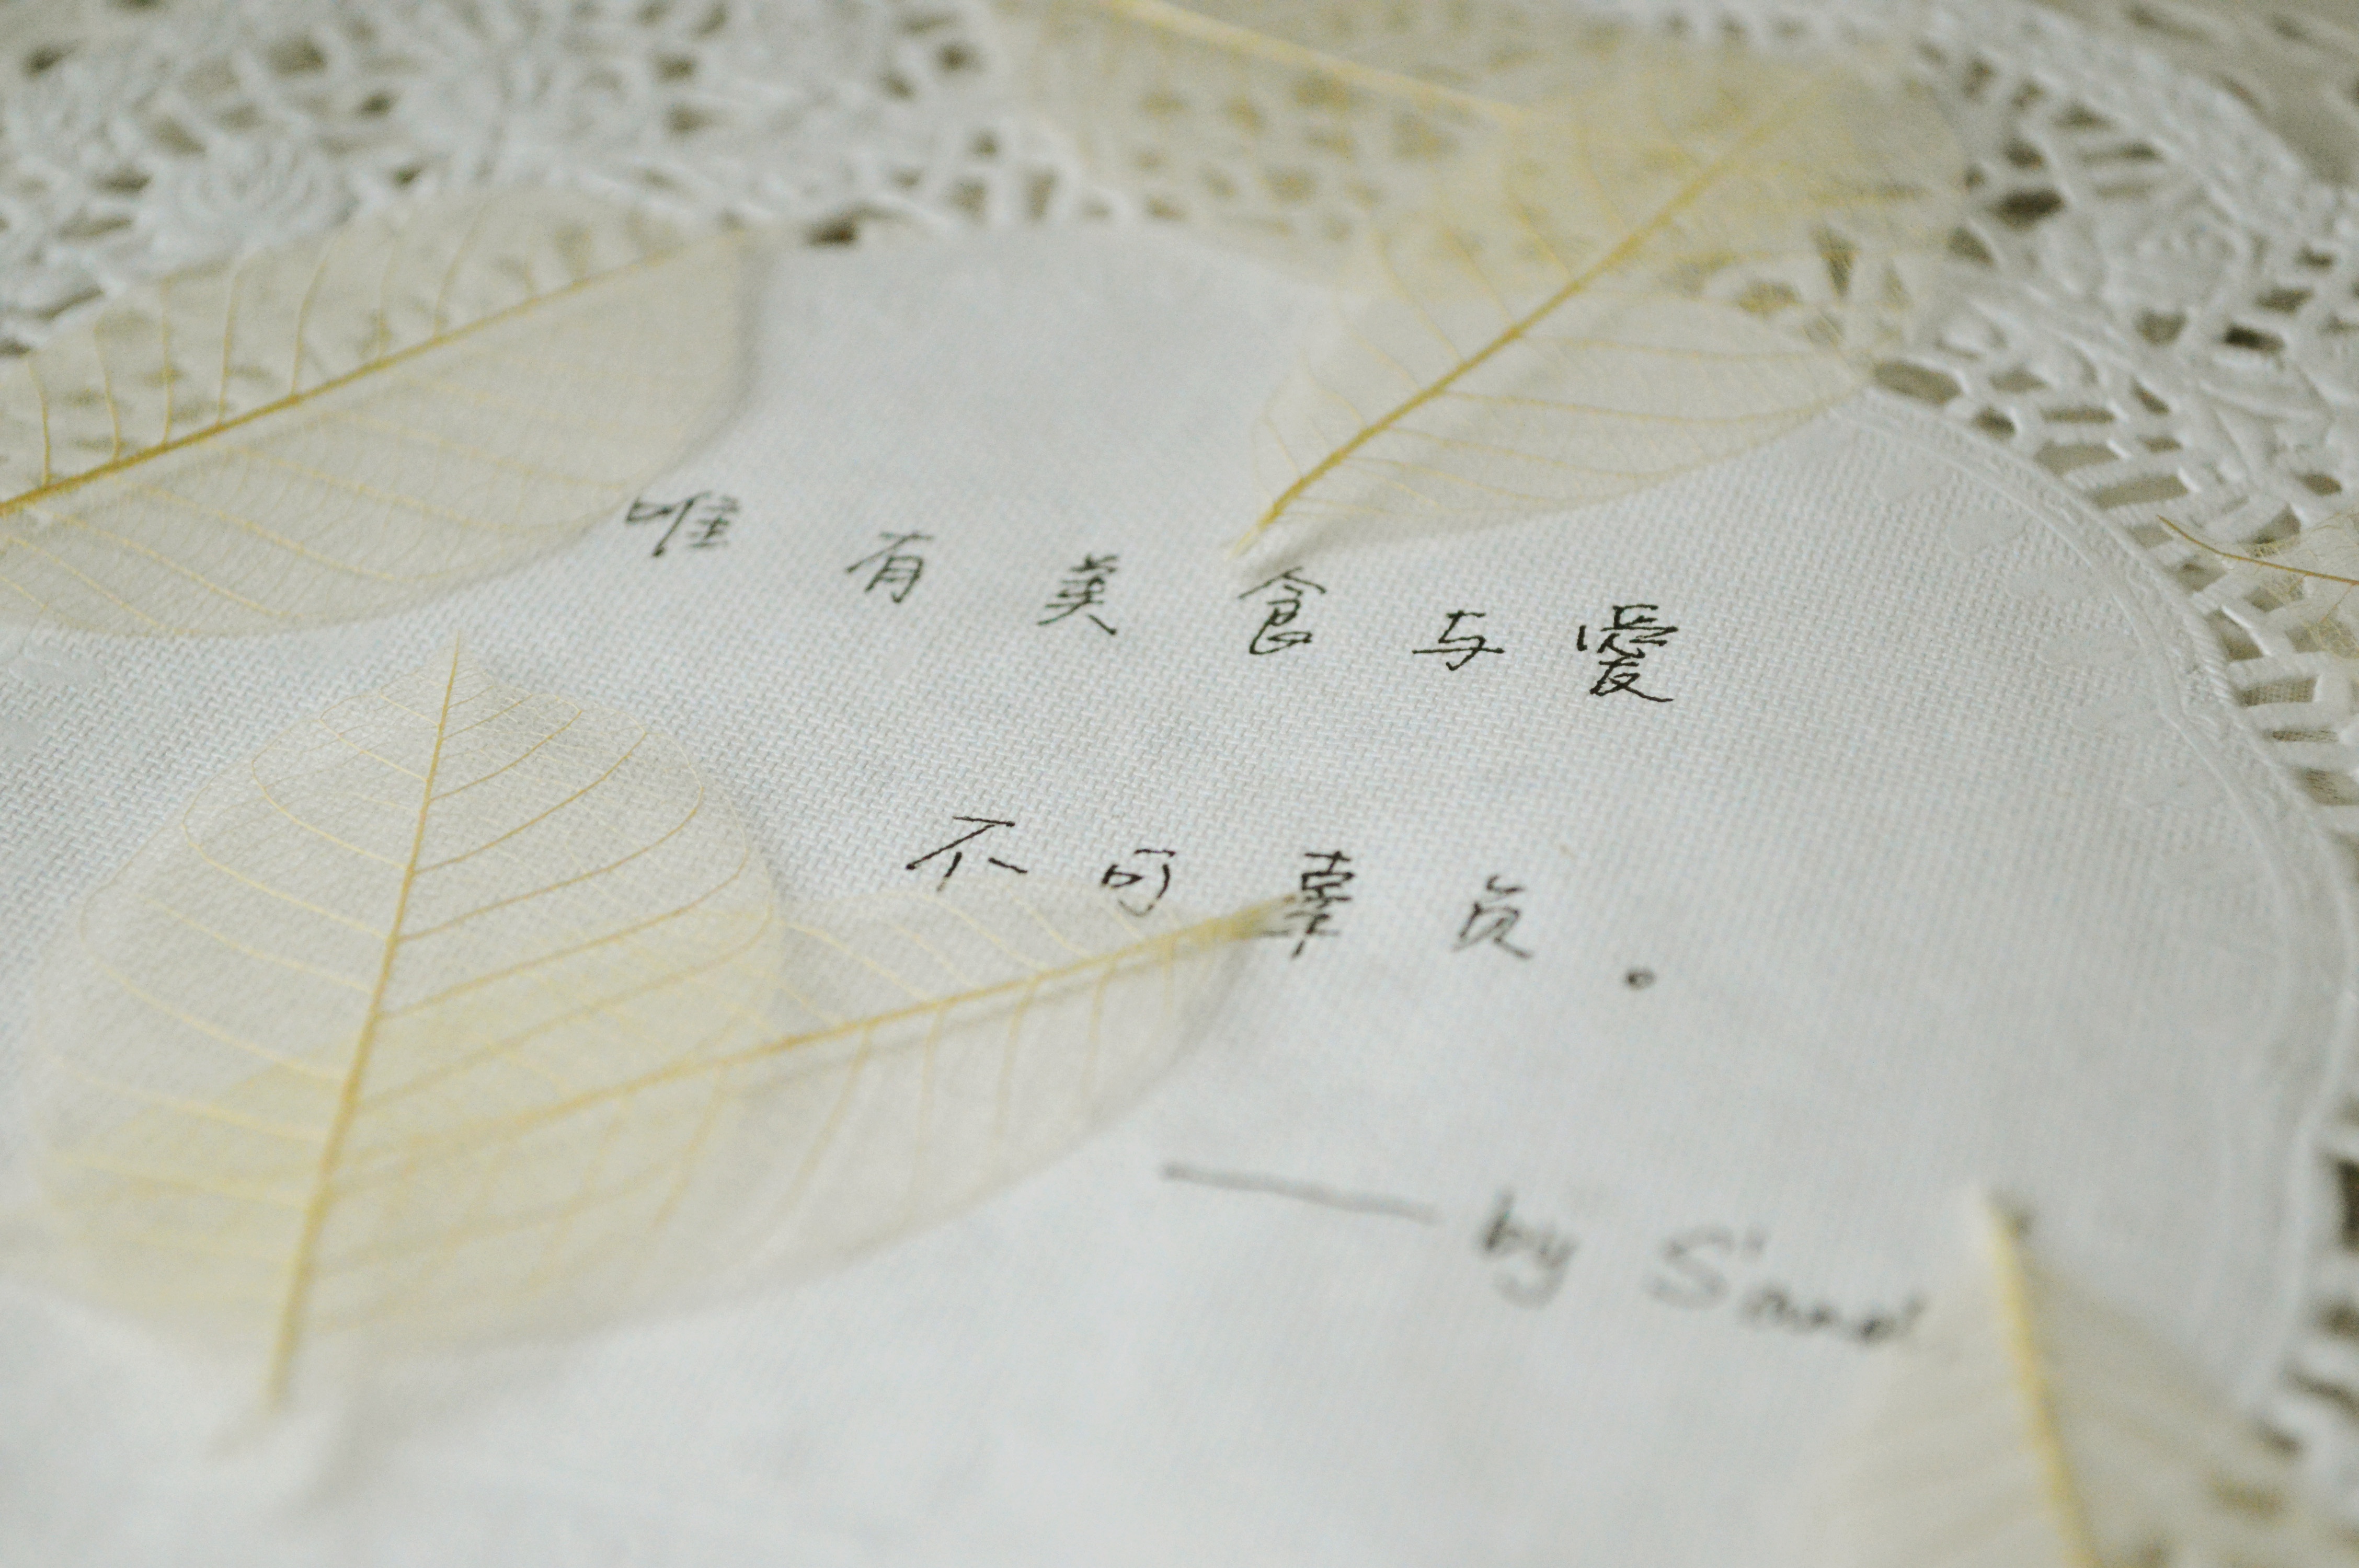 唯有美食与爱
不可辜负。
——by